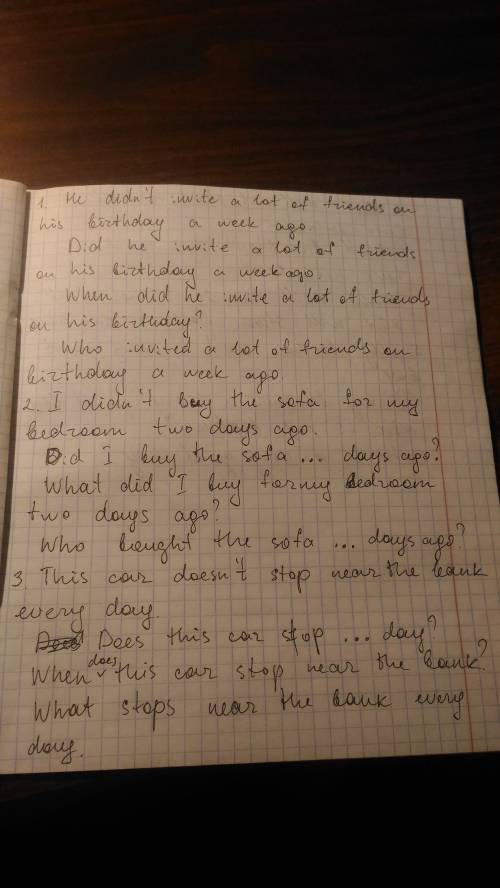 1. He didn't invite a lot of friends on
his birthday a week ago.
Did he invite a lot of friends
on his birthday a week ago.
When did he invite a lot of friends
on his birthday?
Who invited a lot of friends on
birthday a week ago.
2. I didn't buy the sofa for my
bedroom two days ago.
Did I buy the sofa ... days ago?
What did I buy for my bedroom
two days ago?
Who bought the sofa ... days ago?
3. This car doesn't stop near the bank
every day.
Does this car stop ... day?
When does this car stop near the bank?
What stops near the bank every
day.